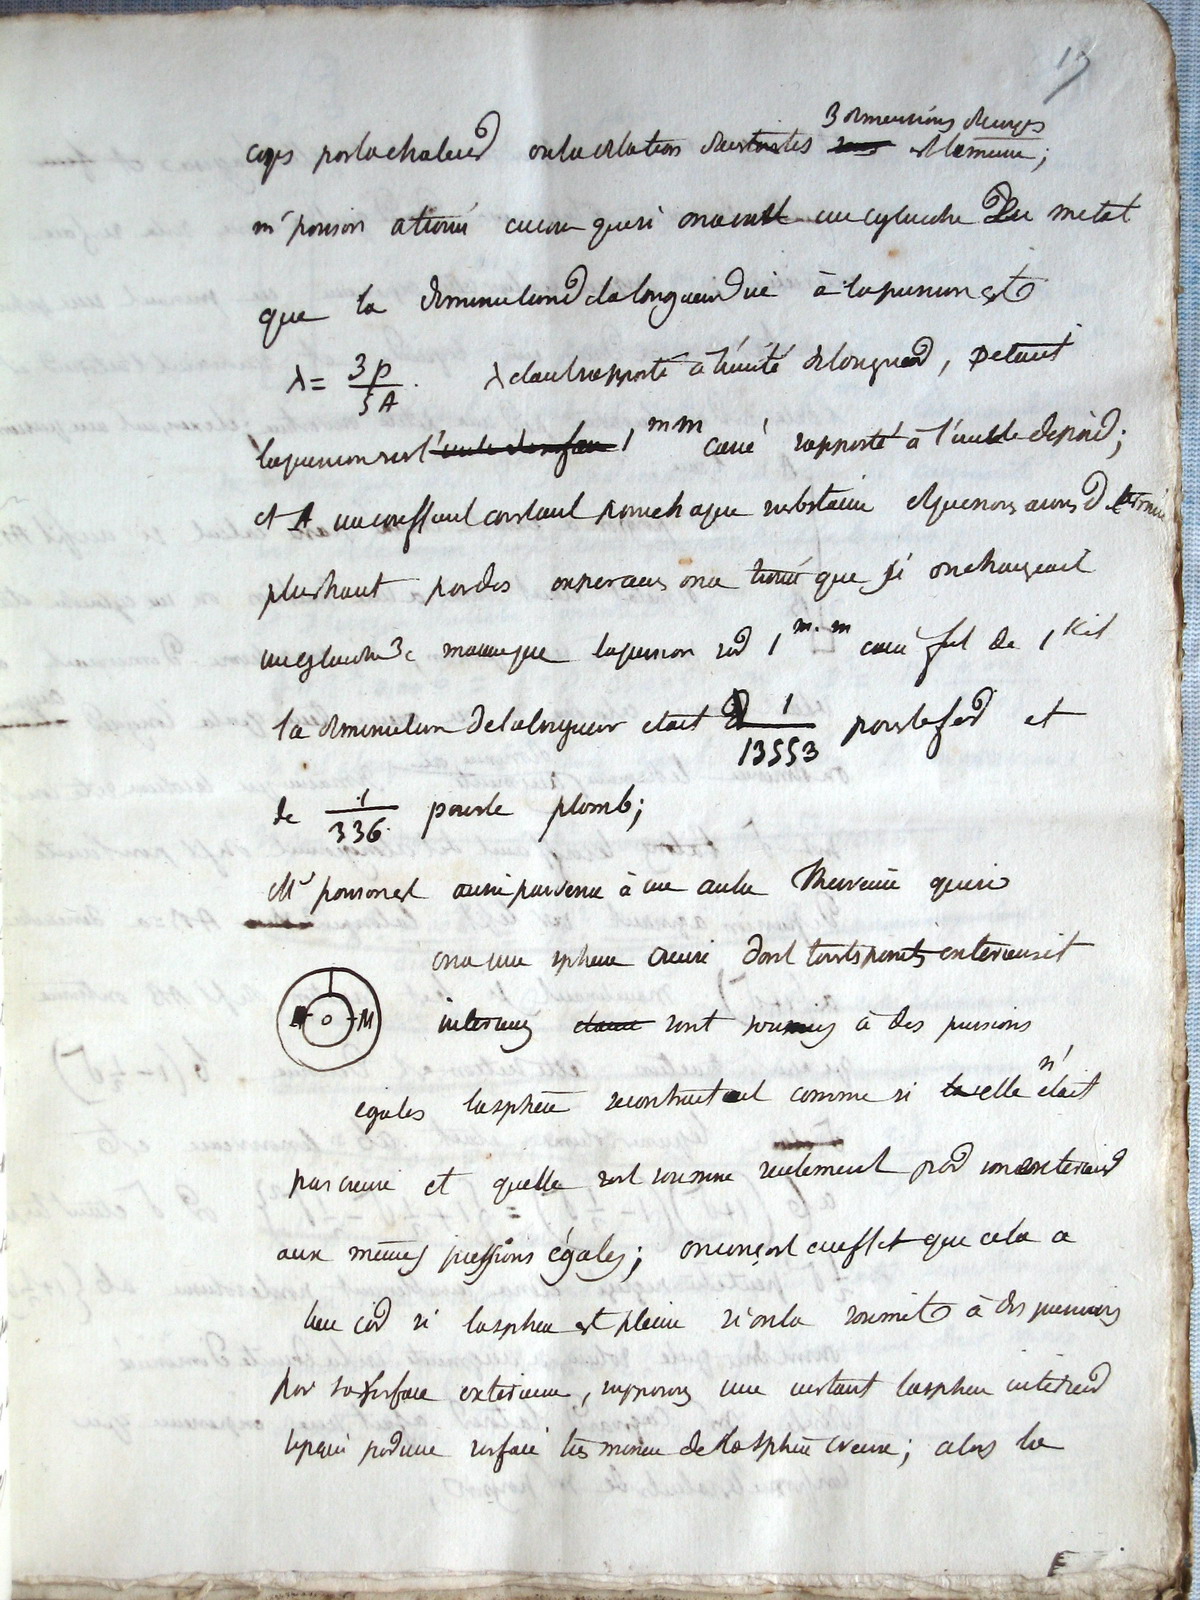 17
3 dimensions du corps
corps par la chaleur ou la dilatation dans toutes est la même;
mr poisson a trouvé encore que si on avait un cylindre de metal
que la diminution de la longueur due à la pression est
λ = 3p/5A. λ étant rapporté à l'unité de longueur, p étant
la pression sur l'unité de surface 1 mm carré rapporté à l'unité de poid;
et A un coefficient constant pour chaque substance et que nous avons determiné
plus haut par des experiences on a trouvé que si on chargeait
un cylindre de maniere que la pression sur 1 m.m carré fut de 1 Kil
la diminution de la longueur etait de 1/13553 pour le fer et
de 1/336 pour le plomb;
Mr poisson est aussi parvenu à un autre theoreme que si
on a une sphere creuse dont touts points exterieurs et
M o M
interieurs etant sont soumis à des pressions
égales la sphere se contractent comme si la elle n'était
pas creuse et quelle soit soumise seulement par son exterieur
aux mêmes pressions égales; on conçoit en effet que cela a
lieu car si la sphere est pleine si on la soumet à des pressions
par sa surface exterieure, supposons un instant la sphere interieur
séparé par une surface très mince de la sphère creuse; alors la
E